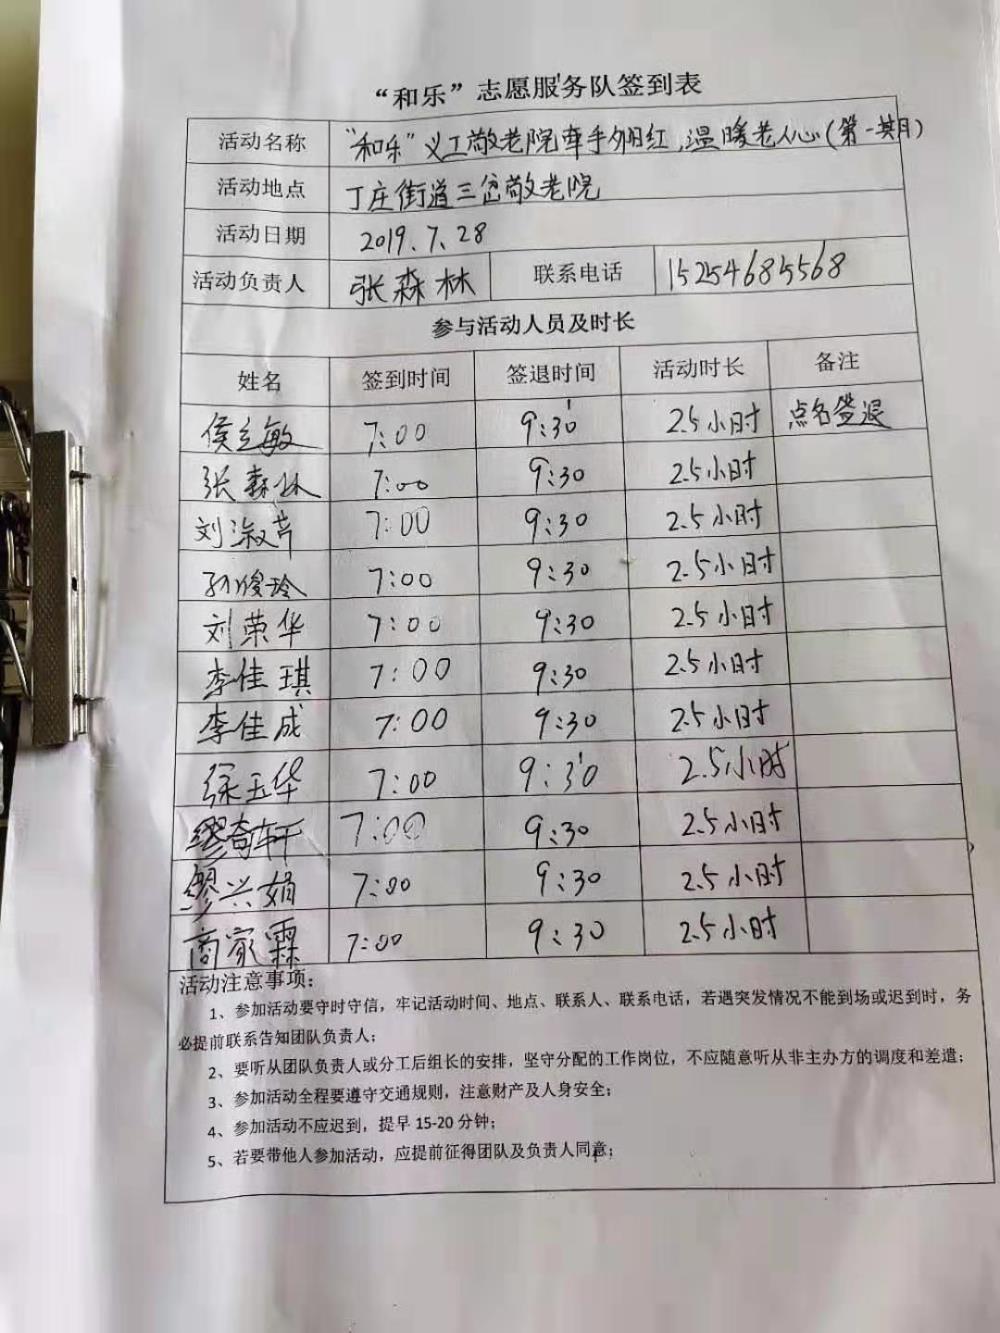 “和乐”志愿服务队签到表
活动名称 “和乐”义工敬老院牵手夕阳红,温暖老人心(第一期)
活动地点 丁庄街道三岔敬老院
活动日期 2019.7.28
活动负责人 张森林 联系电话 15254685568
参与活动人员及时长
姓名 签到时间 签退时间 活动时长 备注
侯立敏 7:00 9:30 2.5小时 点名签退
张森林 7:00 9:30 2.5小时
刘淑芹 7:00 9:30 2.5小时
孙俊玲 7:00 9:30 2.5小时
刘荣华 7:00 9:30 2.5小时
李佳琪 7:00 9:30 2.5小时
李佳成 7:00 9:30 2.5小时
徐玉华 7:00 9:30 2.5小时
缪奇轩 7:00 9:30 2.5小时
缪兴娟 7:00 9:30 2.5小时
商家霖 7:00 9:30 2.5小时
活动注意事项:
1、参加活动要守时守信，牢记活动时间、地点、联系人、联系电话，若遇突发情况不能到场或迟到时，务
必提前联系告知团队负责人；
2、要听从团队负责人或分工后组长的安排，坚守分配的工作岗位，不应随意听从非主办方的调度和差遣；
3、参加活动全程要遵守交通规则，注意财产及人身安全；
4、参加活动不应迟到，提早 15-20 分钟；
5、若要带他人参加活动，应提前征得团队及负责人同意；